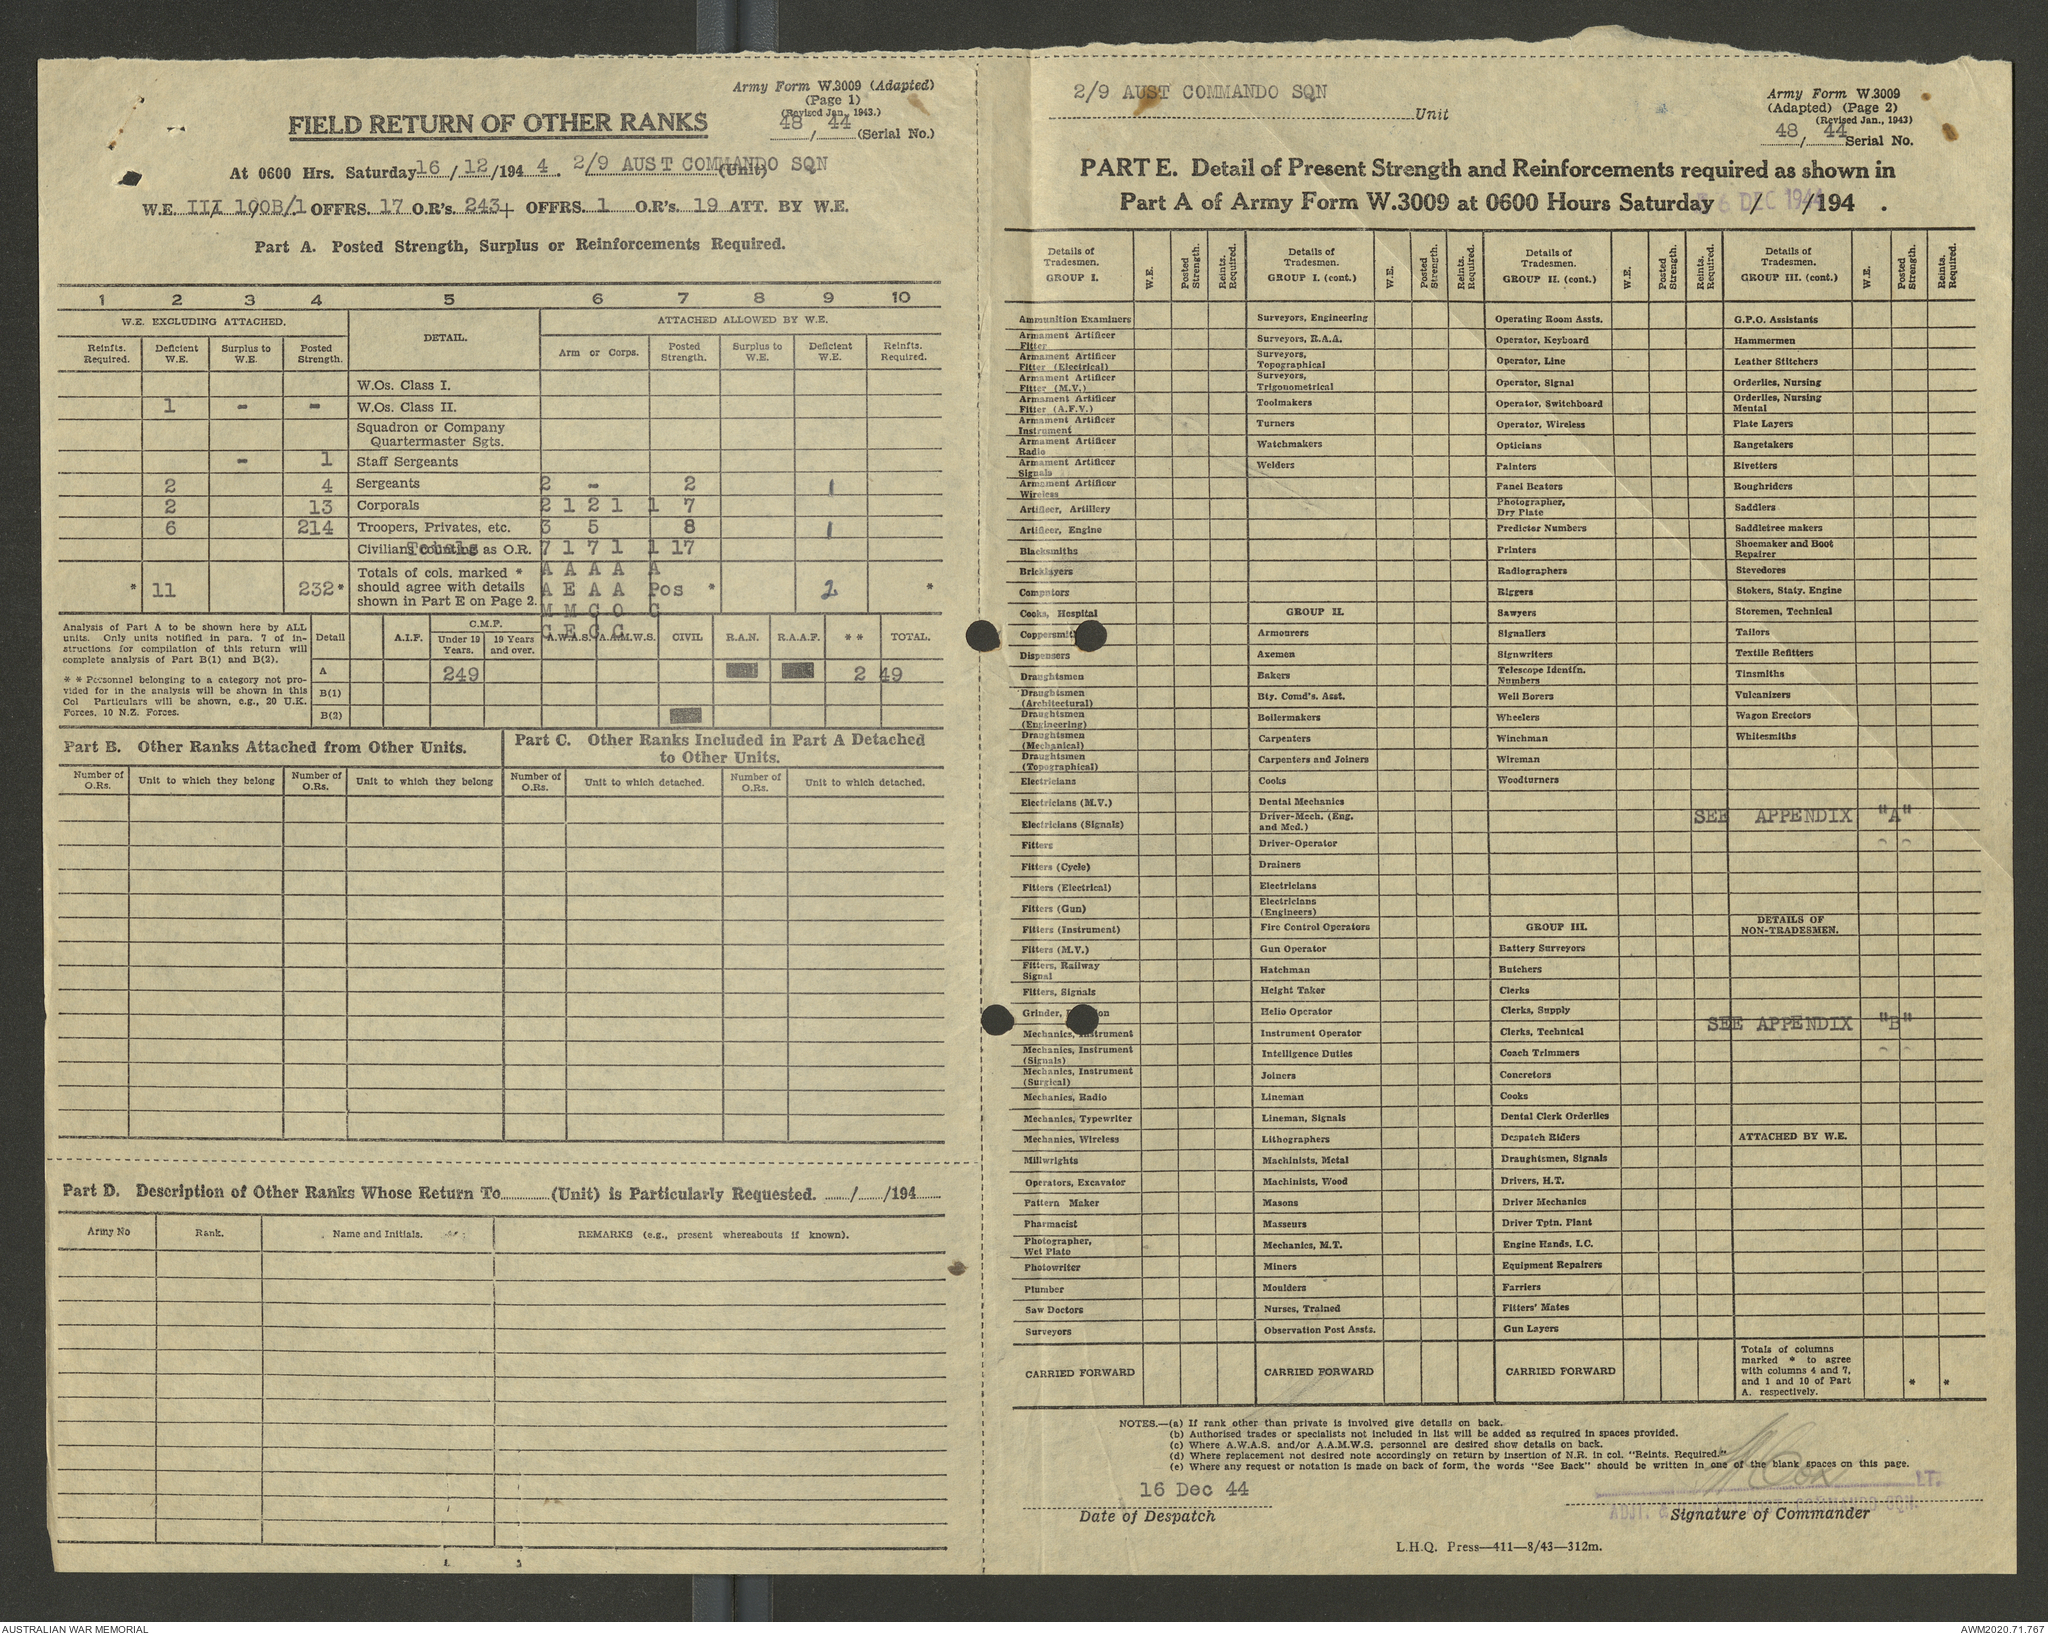 Army Form W.3009 (Adapted)
(Page 1)
(Revised Jan., 1943.)
FIELD RETURN OF OTHER RANKS
48 / 44 (Serial No.)
At 0600 Hrs. Saturday 16 / 12 /194 4 . 2/9 AUST COMMANDO SQN (Unit)
W.E. III 100B/1 OFFRS. 17 O.R's. 243+ OFFRS. 1 O.R's. 19 ATT. BY W.E.
Part A. Posted Strength, Surplus or Reinforcements Required.
1 2 3 4 5 6 7 8 9 10
W.E. EXCLUDING ATTACHED. DETAIL. ATTACHED ALLOWED BY W.E.
Reinfts. Required. Deficient W.E. Surplus to W.E. Posted Strength. Arm or Corps. Posted Strength. Surplus to W.E. Deficient W.E. Reinfts. Required.
W.Os. Class I.
1 - - W.Os. Class II.
Squadron or Company
Quartermaster Sgts.
- 1 Staff Sergeants
2 4 Sergeants 2 - 2 1
2 13 Corporals 2 1 2 1 1 7
6 214 Troopers, Privates, etc. 3 5 8 1
Civilians counting as O.R. Totals 7 1 7 1 1 17
* 11 232* Totals of cols. marked * A A A A A
should agree with details A E A A Pos * 2 *
shown in Part E on Page 2. M M C O C
C E C C
Analysis of Part A to be shown here by ALL
units. Only units notified in para. 7 of in-
structions for compilation of this return will
complete analysis of Part B(1) and B(2).
* * Personnel belonging to a category not pro-
vided for in the analysis will be shown in this
Col Particulars will be shown, e.g., 20 U.K.
Forces, 10 N.Z. Forces.
Detail A.I.F. C.M.F. Under 19 Years. 19 Years and over. A.W.A.S. A.A.M.W.S. CIVIL R.A.N. R.A.A.F. * * TOTAL.
A 249 2 49
B(1)
B(2)
Part B. Other Ranks Attached from Other Units.
Number of O.Rs. Unit to which they belong Number of O.Rs. Unit to which they belong
Part C. Other Ranks Included in Part A Detached
to Other Units.
Number of O.Rs. Unit to which detached. Number of O.Rs. Unit to which detached.
Part D. Description of Other Ranks Whose Return To (Unit) is Particularly Requested. / /194
Army No Rank. Name and Initials. REMARKS (e.g., present whereabouts if known).
2/9 AUST COMMANDO SQN Unit
Army Form W.3009
(Adapted) (Page 2)
(Revised Jan., 1943)
48 / 44 Serial No.
PART E. Detail of Present Strength and Reinforcements required as shown in
Part A of Army Form W.3009 at 0600 Hours Saturday / /194 .
6 DEC 1944
Details of Tradesmen. GROUP I. W.E. Posted Strength. Reints. Required.
Ammunition Examiners
Armament Artificer Fitter
Armament Artificer Fitter (Electrical)
Armament Artificer Fitter (M.V.)
Armament Artificer Fitter (A.F.V.)
Armament Artificer Instrument
Armament Artificer Radio
Armament Artificer Signals
Armament Artificer Wireless
Artificer, Artillery
Artificer, Engine
Blacksmiths
Bricklayers
Computors
Cooks, Hospital
Coppersmit
Dispensers
Draughtsmen
Draughtsmen (Architectural)
Draughtsmen (Engineering)
Draughtsmen (Mechanical)
Draughtsmen (Topographical)
Electricians
Electricians (M.V.)
Electricians (Signals)
Fitters
Fitters (Cycle)
Fitters (Electrical)
Fitters (Gun)
Fitters (Instrument)
Fitters (M.V.)
Fitters, Railway Signal
Fitters, Signals
Grinder, on
Mechanics, Instrument
Mechanics, Instrument (Signals)
Mechanics, Instrument (Surgical)
Mechanics, Radio
Mechanics, Typewriter
Mechanics, Wireless
Millwrights
Operators, Excavator
Pattern Maker
Pharmacist
Photographer, Wet Plate
Photowriter
Plumber
Saw Doctors
Surveyors
CARRIED FORWARD
Details of Tradesmen. GROUP I. (cont.) W.E. Posted Strength. Reints. Required.
Surveyors, Engineering
Surveyors, R.A.A.
Surveyors, Topographical
Surveyors, Trigonometrical
Toolmakers
Turners
Watchmakers
Welders
GROUP II.
Armourers
Axemen
Bakers
Bty. Comd's. Asst.
Boilermakers
Carpenters
Carpenters and Joiners
Cooks
Dental Mechanics
Driver-Mech. (Eng. and Med.)
Driver-Operator
Drainers
Electricians
Electricians (Engineers)
Fire Control Operators
Gun Operator
Hatchman
Height Taker
Helio Operator
Instrument Operator
Intelligence Duties
Joiners
Lineman
Lineman, Signals
Lithographers
Machinists, Metal
Machinists, Wood
Masons
Masseurs
Mechanics, M.T.
Miners
Moulders
Nurses, Trained
Observation Post Assts.
CARRIED FORWARD
Details of Tradesmen. GROUP II. (cont.) W.E. Posted Strength. Reints. Required.
Operating Room Assts.
Operator, Keyboard
Operator, Line
Operator, Signal
Operator, Switchboard
Operator, Wireless
Opticians
Painters
Panel Beaters
Photographer, Dry Plate
Predictor Numbers
Printers
Radiographers
Riggers
Sawyers
Signallers
Signwriters
Telescope Identfn. Numbers
Well Borers
Wheelers
Winchman
Wireman
Woodturners
GROUP III.
Battery Surveyors
Butchers
Clerks
Clerks, Supply
Clerks, Technical
Coach Trimmers
Concretors
Cooks
Dental Clerk Orderlies
Despatch Riders
Draughtsmen, Signals
Drivers, H.T.
Driver Mechanics
Driver Tptn. Plant
Engine Hands, I.C.
Equipment Repairers
Farriers
Fitters' Mates
Gun Layers
CARRIED FORWARD
Details of Tradesmen. GROUP III. (cont.) W.E. Posted Strength. Reints. Required.
G.P.O. Assistants
Hammermen
Leather Stitchers
Orderlies, Nursing
Orderlies, Nursing Mental
Plate Layers
Rangetakers
Rivetters
Roughriders
Saddlers
Saddletree makers
Shoemaker and Boot Repairer
Stevedores
Stokers, Staty. Engine
Storemen, Technical
Tailors
Textile Refitters
Tinsmiths
Vulcanizers
Wagon Erectors
Whitesmiths
SEE APPENDIX "A"
DETAILS OF
NON-TRADESMEN.
SEE APPENDIX "B"
ATTACHED BY W.E.
Totals of columns
marked * to agree
with columns 4 and 7,
and 1 and 10 of Part * *
A. respectively.
NOTES.—(a) If rank other than private is involved give details on back.
(b) Authorised trades or specialists not included in list will be added as required in spaces provided.
(c) Where A.W.A.S. and/or A.A.M.W.S. personnel are desired show details on back.
(d) Where replacement not desired note accordingly on return by insertion of N.R. in col. "Reints. Required."
(e) Where any request or notation is made on back of form, the words "See Back" should be written in one of the blank spaces on this page.
16 Dec 44
Date of Despatch
Cox LT.
ADJT. & COMMANDO SQN.
Signature of Commander
L.H.Q. Press—411—8/43—312m.
AUSTRALIAN WAR MEMORIAL
AWM2020.71.767